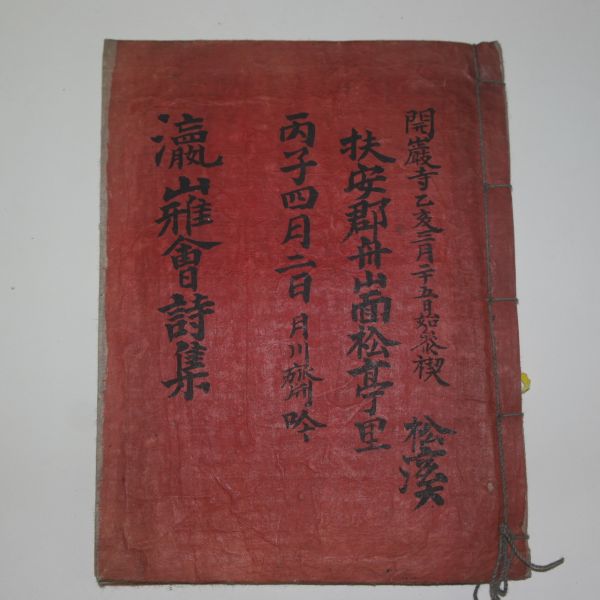 開巖寺乙亥三月二十五日始參禊
松溪
扶安郡舟山面松亭里
丙子四月二日月川齋吟
瀛山雅會詩集